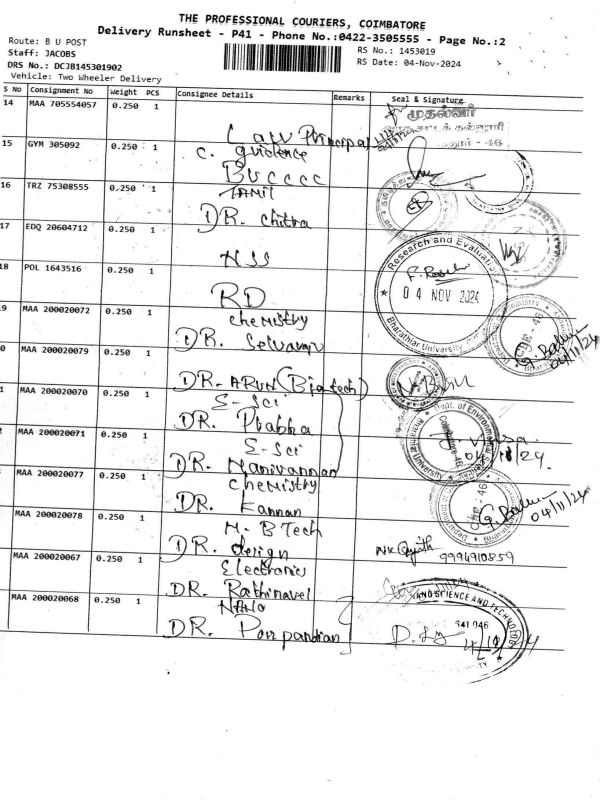 THE PROFESSIONAL COURIERS, COIMBATORE
Delivery Runsheet - P41 - Phone No.:0422-3505555 - Page No.:2
Route: B U POST
Staff: JACOBS
RS No.: 1453019
DRS No.: DCJB145301902
RS Date: 04-Nov-2024
Vehicle: Two Wheeler Delivery
S No Consignment No Weight PCS Consignee Details Remarks Seal & Signature
14 MAA 705554057 0.250 1
முதல்வர்
Law Principal
15 GYM 305092 0.250 1
C. guidence
BUCCCC
16 TRZ 75308555 0.250 1
TAMIL
DR. chitra
17 EDQ 20604712 0.250 1
NSS
Research and Evaluation
Bharathiar University
04 NOV 2024
18 POL 1643516 0.250 1
RD
9 MAA 200020072 0.250 1
chemistry
DR. Selvaraj
04/11/24
0 MAA 200020079 0.250 1
DR. ARUN (Biotech)
1 MAA 200020070 0.250 1
E-Sci
DR. Prabha
Dept. of Environmental
University
Coimbatore-46
MAA 200020071 0.250 1
E-Sci
DR. Manivannan
MAA 200020077 0.250 1
chemistry
DR. Kannan
04/11/24
MAA 200020078 0.250 1
M. B Tech
DR. design
9994910859
MAA 200020067 0.250 1
Electronics
DR. Rathinavel
MAA 200020068 0.250 1
NANO
DR. Ponpandian
AND SCIENCE AND TECHNOLOGY
641 046